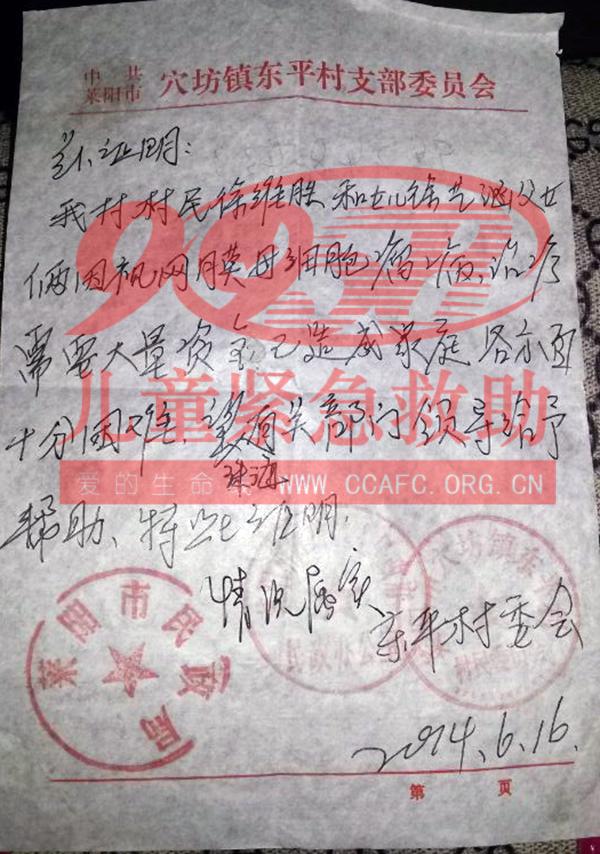 中共
莱阳市 穴坊镇东平村支部委员会
证明:
我村村民徐维胜和女儿徐艺涵父女
俩因视网膜母细胞瘤病,治疗
需要大量资金已造成家庭各方面
十分困难,望有关部门领导给予
帮助、特此证明.
情况属实
东平村委会
2014.6.16.
第 页
莱阳市民政局
民政办公
穴坊镇东
99
儿童紧急救助
爱的生命线 WWW.CCAFC.ORG.CN